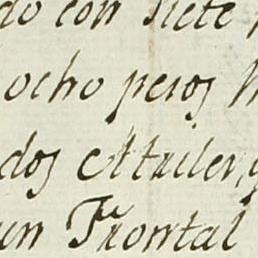 do con siete
ocho pesos
dos Atriles, y
un Frontal